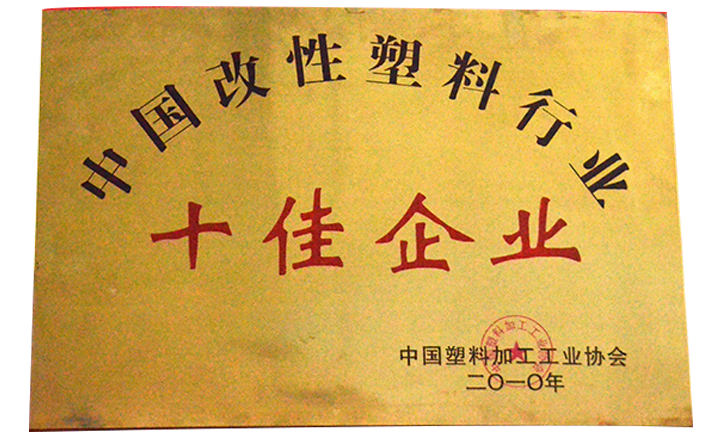 中国改性塑料行业
十佳企业
中国塑料加工工业协会
二〇一〇年